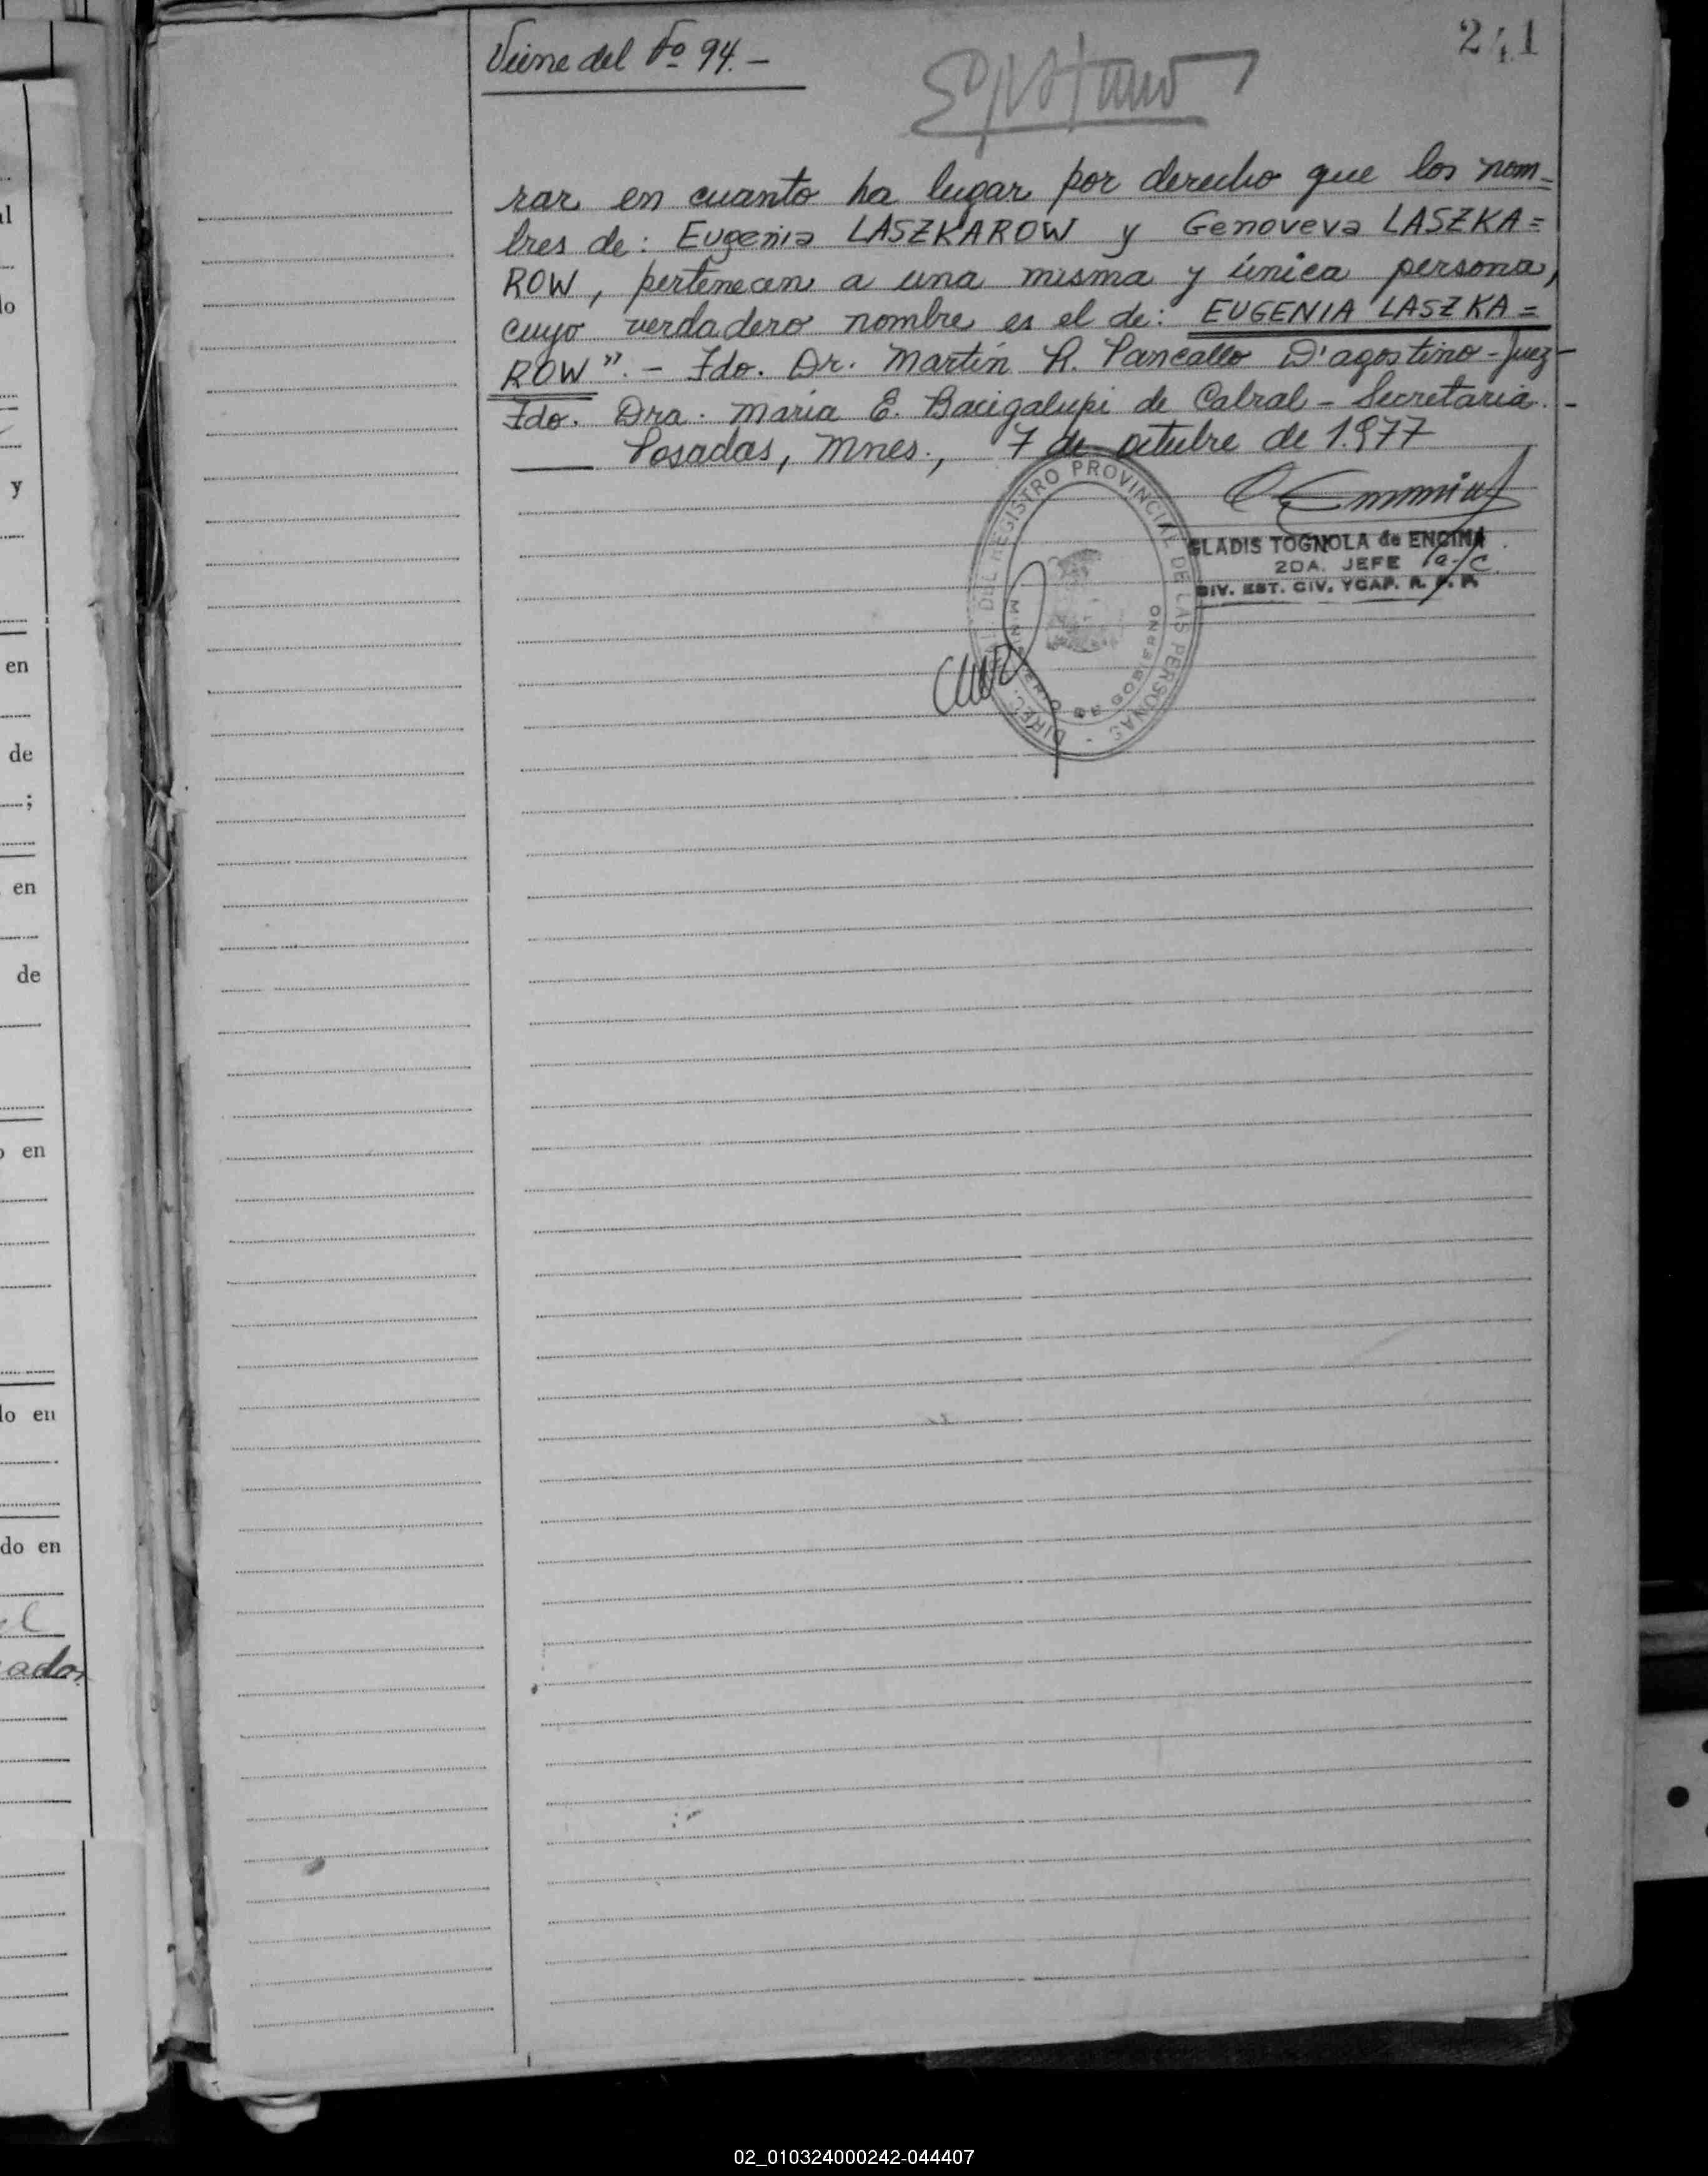 241
Viene del Fº 94.-
rar en cuanto ha lugar por derecho que los nom-
bres de: Eugenia LASZKAROW y Genoveva LASZKA=
ROW, pertenecen a una misma y única persona,
cuyo verdadero nombre es el de: EUGENIA LASZKA=
ROW".- Fdo. Dr. Martín R. Pancallo D'agostino-Juez-
Fdo. Dra. María E. Bacigalupi de Cabral - Secretaria.-
Posadas, Mnes., 7 de octubre de 1.977
DIREC. DEL REGISTRO PROVINCIAL DE LAS PERSONAS -
MINISTERIO DE GOBIERNO
GLADIS TOGNOLA de ENCINA
2DA. JEFE a/c.
DIV. EST. CIV. YCAP. R. P. P.
al
lo
y
en
de
;
en
de
o en
do en
do en
el
ador
02_010324000242-044407